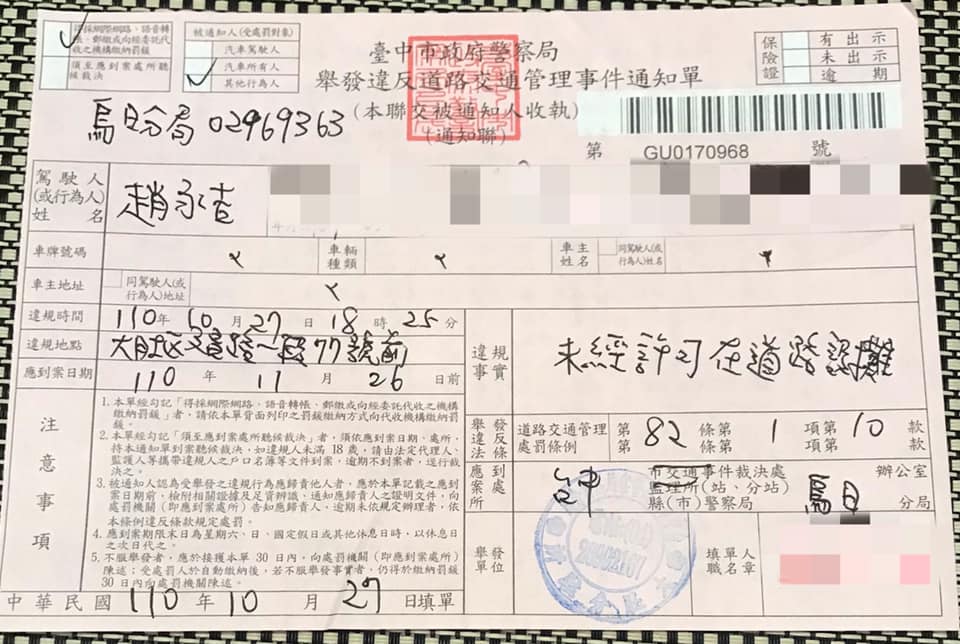 得採網際網路、語音轉帳、郵繳或向經委託代收之機構繳納罰鍰
須至應到案處所聽候裁決
被通知人(受處罰對象)
汽車駕駛人
汽車所有人
其他行為人
臺中市政府警察局
舉發違反道路交通管理事件通知單
(本聯交被通知人收執)
(通知聯)
保險證
有出示
未出示
逾期
烏日分局 02969363
第 GU0170968 號
駕駛人
(或行為人)
姓名
車牌號碼
車輛種類
車主姓名
同駕駛人(或行為人)姓名
車主地址
同駕駛人(或行為人)地址
違規時間 110年10月27日18時25分
違規地點 大肚區 路一段77號前
應到案日期 110年11月26日前
違規事實 未經許可在道路設攤
注意事項
1.本單經勾記「得採網際網路、語音轉帳、郵繳或向經委託代收之機構
繳納罰鍰」者,請依本單背面列印之罰鍰繳納方式向代收機構繳納罰
鍰。
2.本單經勾記「須至應到案處所聽候裁決」者,須依應到案日期、處所,
持本通知單到案聽候裁決。如違規人未滿18歲,請由法定代理人、
監護人等攜帶違規人之戶口名簿等文件到案,逾期不到案者,逕行裁
決之。
3.被通知人認為受舉發之違規行為應歸責他人者,應於本單記載之應到
案日期前,檢附相關證據及足資辨識、通知應歸責人之證明文件,向
處罰機關(即應到案處所)告知應歸責人,逾期未依規定辦理者,依
本條例違反條款規定處罰。
4.應到案期限末日為星期六、日、國定假日或其他休息日時,以休息日
之次日代之。
5.不服舉發者,應於接獲本單30日內,向處罰機關(即應到案處所)
陳述;受處罰人於自動繳納後,若不服舉發事實者,仍得於繳納罰鍰
30日內向處罰機關陳述。
舉發違反法條
道路交通管理處罰條例
第82條第1項第10款
第 條第 項第 款
應到案處所
台中
市交通事件裁決處
監理所(站、分站)
縣(市)警察局
烏日
辦公室
分局
舉發單位
填單人職名章
中華民國110年10月27日填單